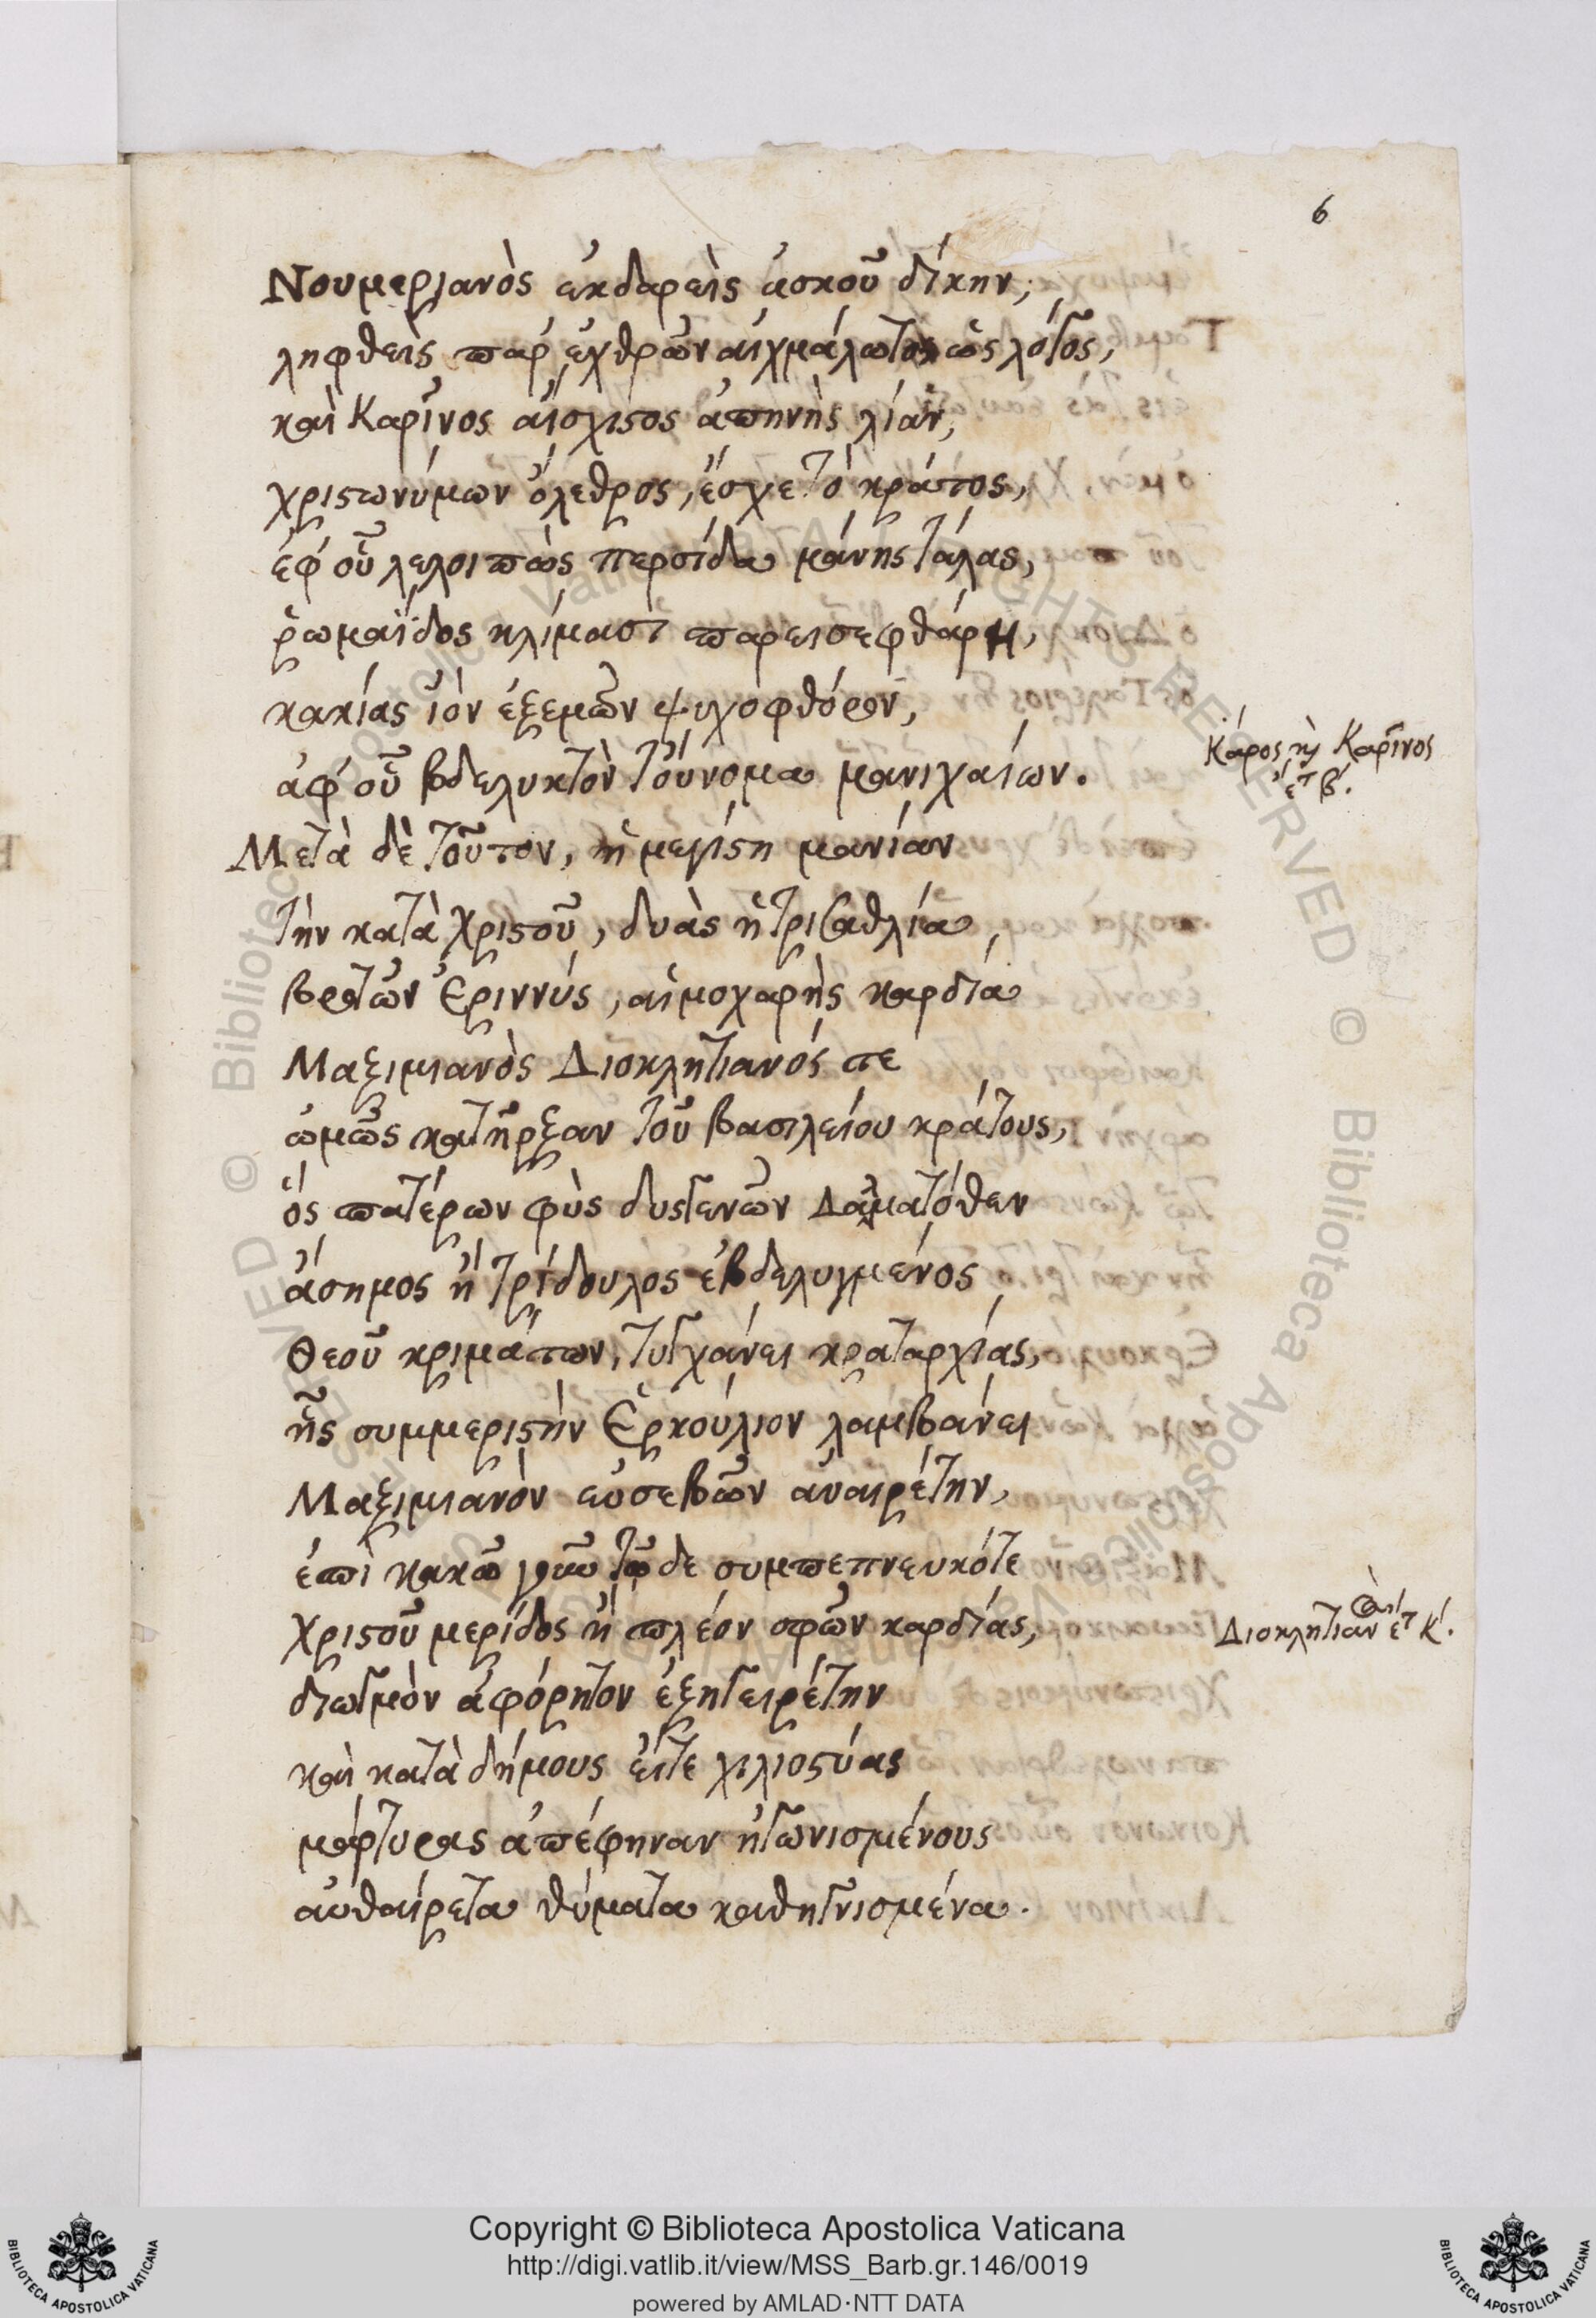 6
Νουμεριανὸς ἐκδαρεὶς ἀσκοῦ δίκην,
ληφθεὶς παρ' ἐχθρῶν αἰχμάλωτος ὡς λόγος,
καὶ Καρῖνος αἴσχιστος ἀπηνὴς λίαν,
χριστωνύμων ὄλεθρος, ἔσχε τὸ κράτος,
ἐφ' οὗ λελοιπὼς Περσίδα μάνης τάλας,
ῥωμαΐδος κλίμασι παρεισεφθάρη,
κακίας ἰὸν ἐξεμῶν ψυχοφθόρον,
ἀφ' οὗ βδελυκτὸν τοὔνομα μανιχαίων.
Κάρος καὶ Καρῖνος
ἔτ β΄.
Μετὰ δὲ τοῦτον, ἡ μεγίστη μανίαν
τὴν κατὰ Χριστοῦ, δυὰς ἡ τρισαθλία,
βροτῶν Ἐριννύς, αἱμοχαρὴς καρδία
Μαξιμιανὸς Διοκλητιανός τε
ὠμῶς κατῆρξαν τοῦ βασιλείου κράτους,
ὃς πατέρων φὺς δυσγενῶν Δαλματόθεν
ἄσημος ἢ τρίδουλος ἐβδελυγμένος
Θεοῦ κριμάτων, τυγχάνει κραταρχίας,
ἧς συμμεριστὴν Ἑρκούλιον λαμβάνει
Μαξιμιανὸν εὐσεβῶν ἀναιρέτην,
ἐπὶ κακῷ γοῦν τῷδε συμπεπνευκότε
Χριστοῦ μερίδος ἢ πλέον σφῶν καρδίας,
Διοκλητιαν ἔτ κ΄.
διωγμὸν ἀφόρητον ἐξηγειρέτην
καὶ κατὰ δήμους εἴτε χιλιοστύας
μάρτυρας ἀπέφηναν ἠγωνισμένους
αὐθαίρετα θύματα καθηγνισμένα.
Copyright © Biblioteca Apostolica Vaticana
http://digi.vatlib.it/view/MSS_Barb.gr.146/0019
powered by AMLAD·NTT DATA